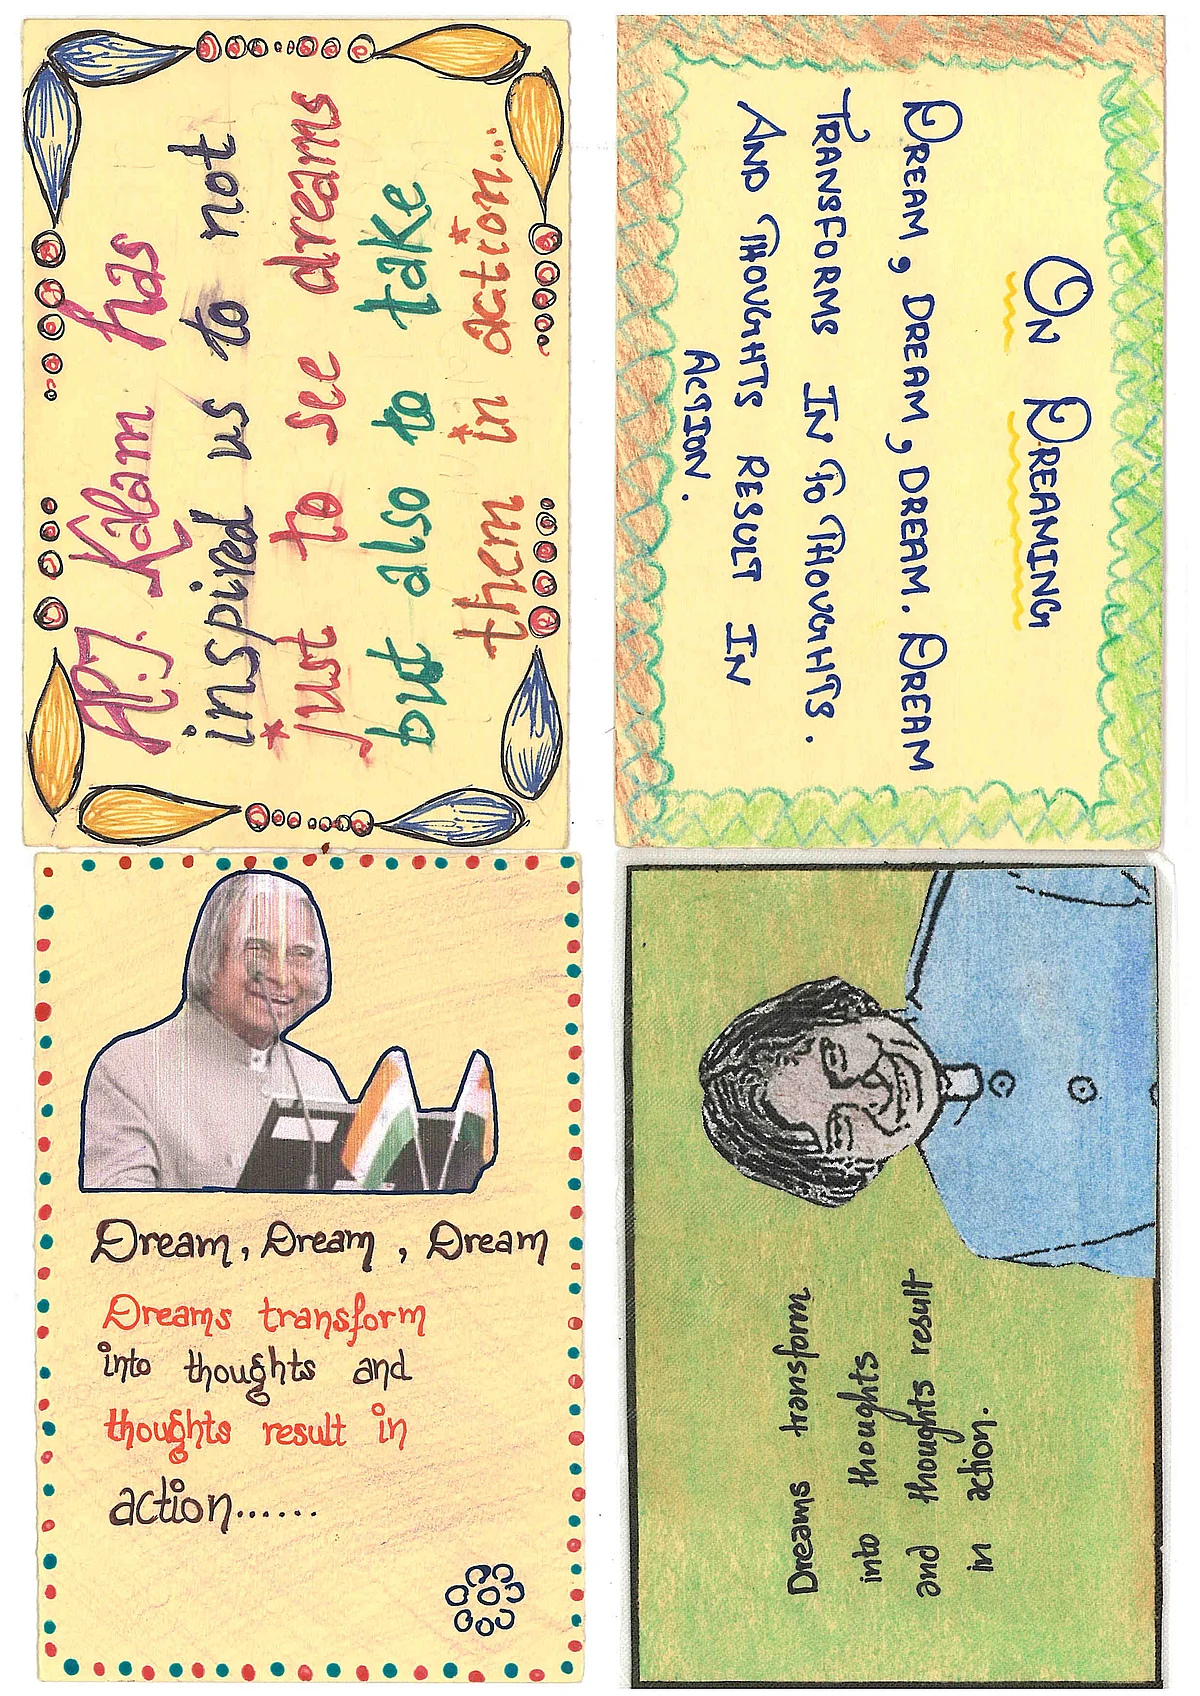 A.P.J. Kalam has
inspired us to not
just to see dreams
but also to take
them in action...
On Dreaming
Dream, Dream, Dream. Dream
Transforms In To Thoughts.
And Thoughts Result In
Action.
Dream, Dream, Dream
Dreams transform
into thoughts and
thoughts result in
action......
Dreams transform
into thoughts
and thoughts result
in action.